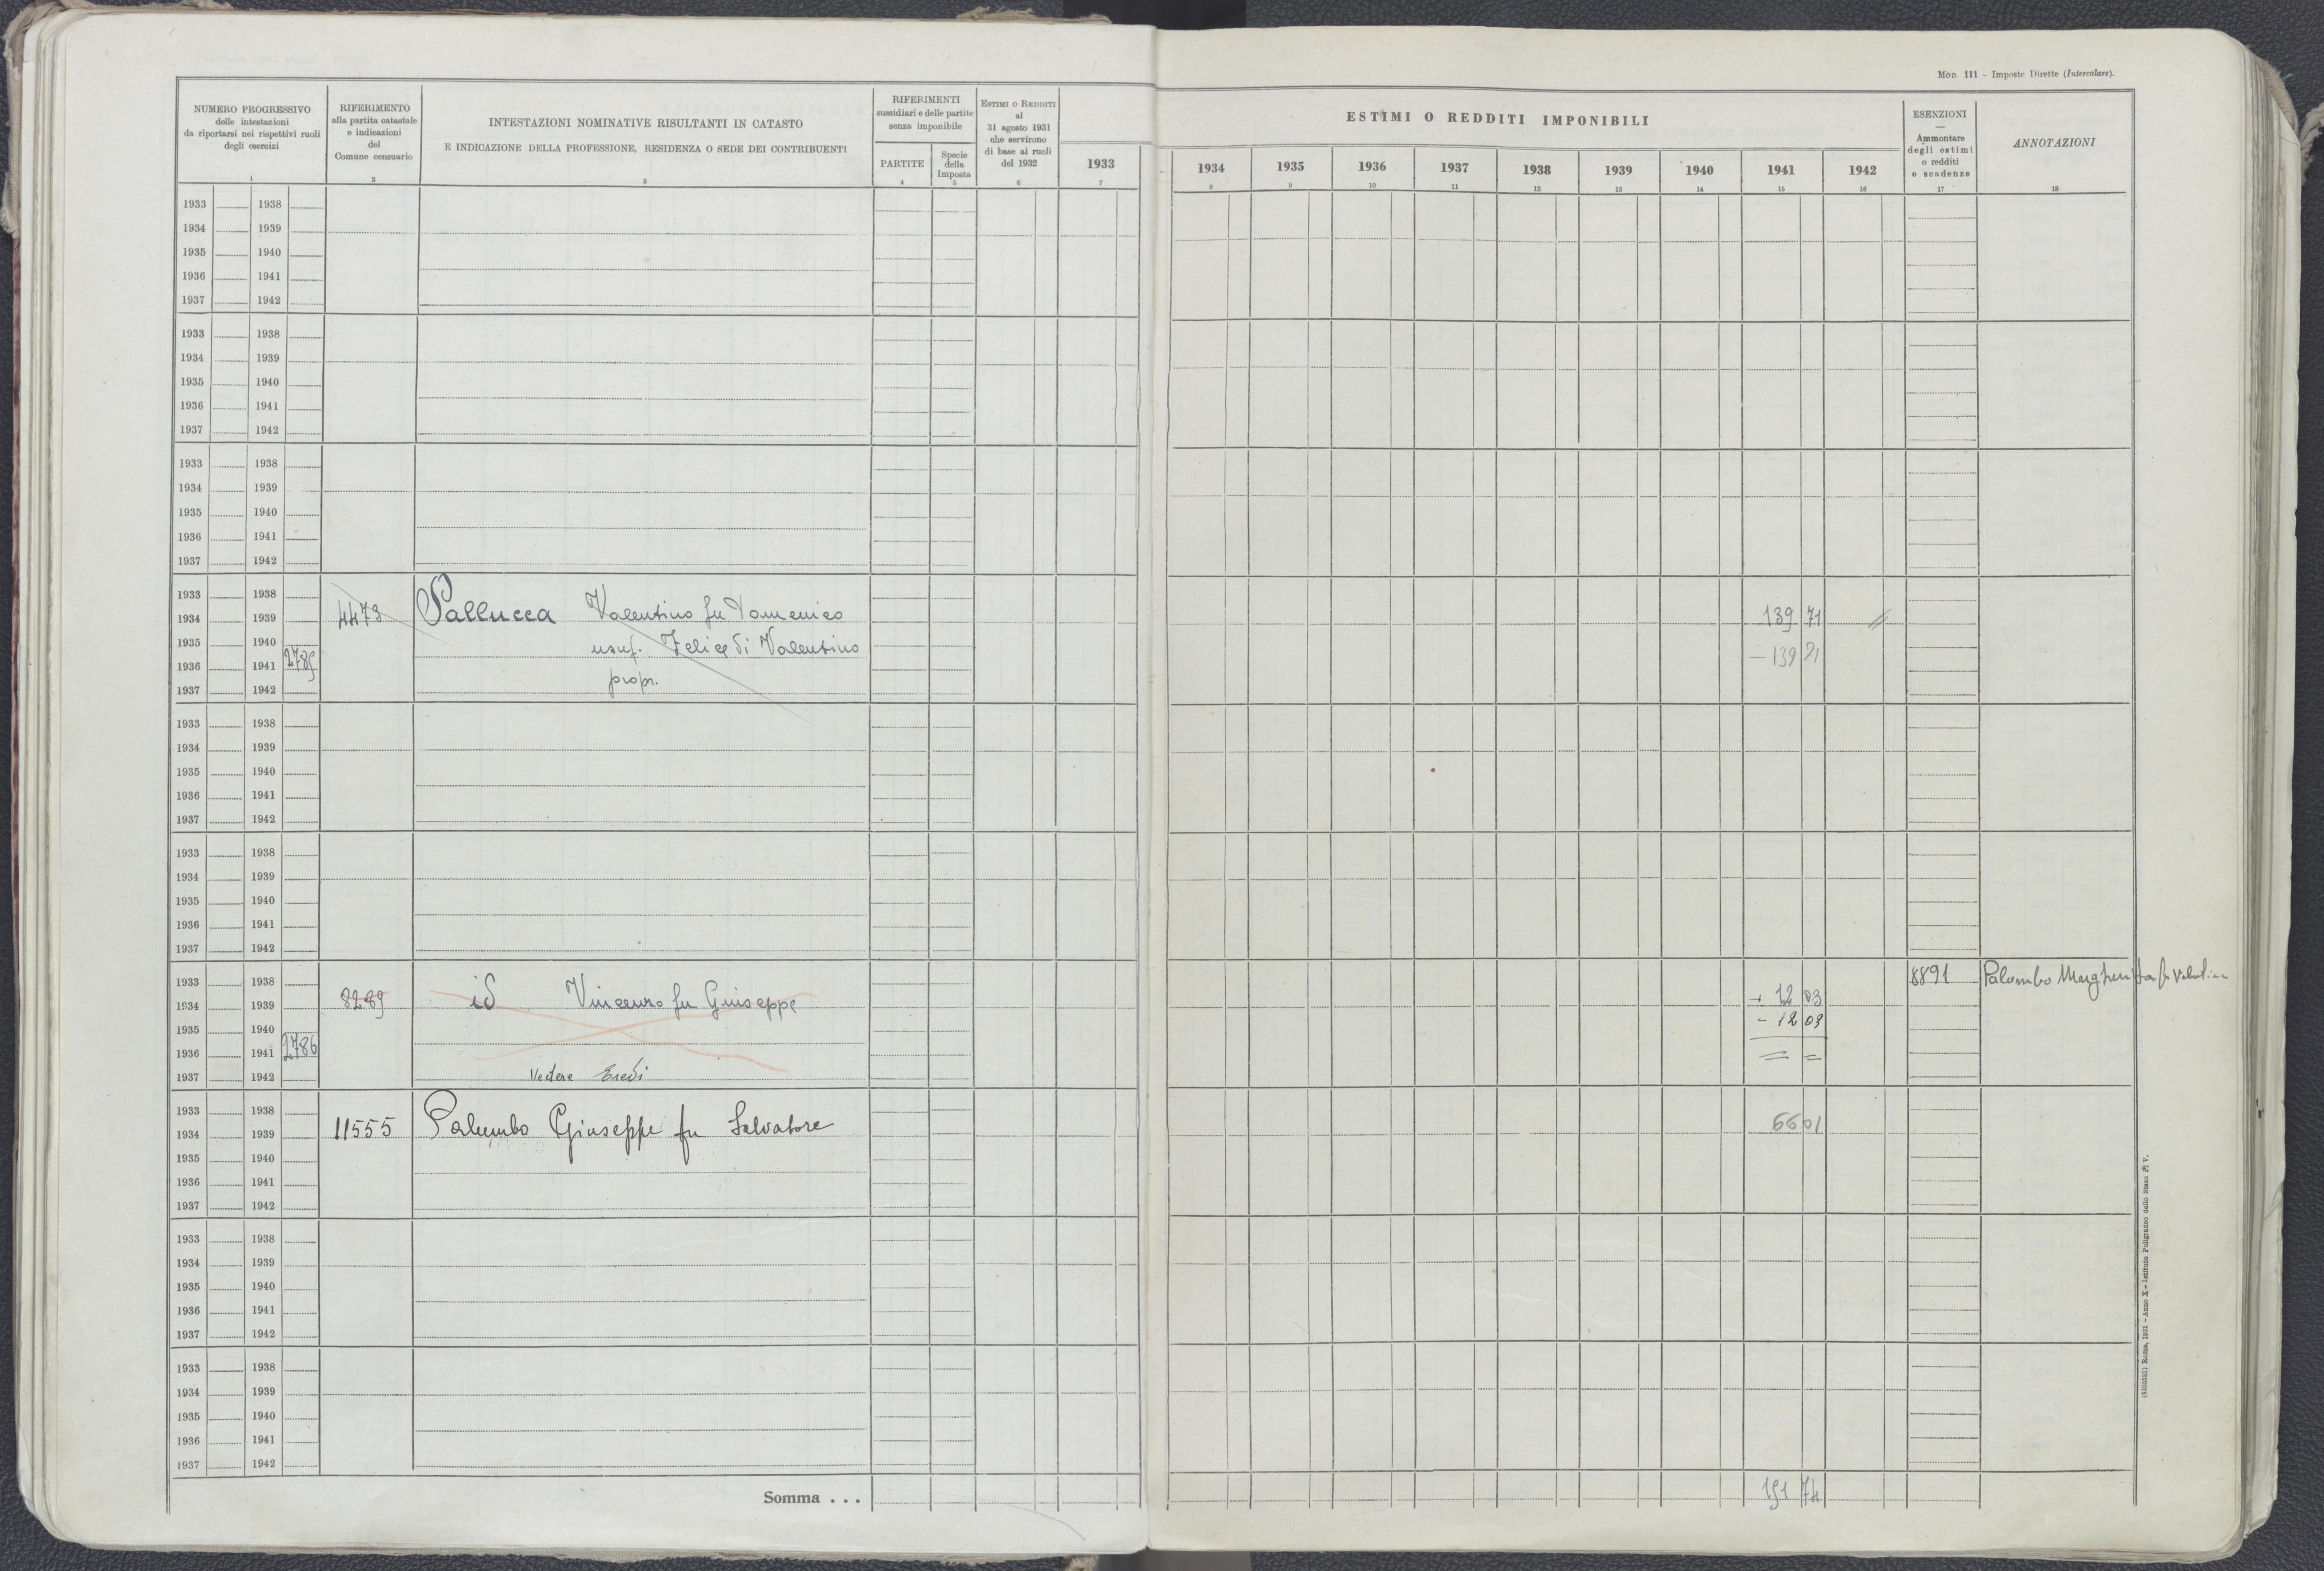 Mod. 111 - Imposte Dirette (Intercalare).
NUMERO PROGRESSIVO
delle intestazioni
da riportarsi nei rispettivi ruoli
degli esercizi
1
RIFERIMENTO
alla partita catastale
e indicazioni
del
Comune censuario
2
INTESTAZIONI NOMINATIVE RISULTANTI IN CATASTO
E INDICAZIONE DELLA PROFESSIONE, RESIDENZA O SEDE DEI CONTRIBUENTI
3
RIFERIMENTI
sussidiari e delle partite
senza imponibile
PARTITE
4
Specie
della
Imposta
5
ESTIMI O REDDITI
al
31 agosto 1931
che servirono
di base ai ruoli
del 1932
6
1933
7
ESTIMI O REDDITI IMPONIBILI
1934 1935 1936 1937 1938 1939 1940 1941 1942
8 9 10 11 12 13 14 15 16
ESENZIONI
—
Ammontare
degli estimi
o redditi
e scadenze
17
ANNOTAZIONI
18
1933 1938
1934 1939
1935 1940
1936 1941
1937 1942
1933 1938
1934 1939
1935 1940
1936 1941
1937 1942
1933 1938
1934 1939
1935 1940
1936 1941
1937 1942
1933 1938
1934 1939 4473 Pallucca Valentino fu Domenico 139 71 //
1935 1940 usuf. Felice di Valentino
1936 1941 2785 - 139 71
1937 1942 propr.
1933 1938
1934 1939
1935 1940
1936 1941
1937 1942
1933 1938
1934 1939
1935 1940
1936 1941
1937 1942
1933 1938 8891 Palombo Margherita fu Valentino
1934 1939 8289 id Vincenzo fu Giuseppe + 12 03
1935 1940 - 12 03
1936 1941 2786 = =
1937 1942 Vedere Eredi
1933 1938
1934 1939 11555 Palumbo Giuseppe fu Salvatore 66 01
1935 1940
1936 1941
1937 1942
1933 1938
1934 1939
1935 1940
1936 1941
1937 1942
1933 1938
1934 1939
1935 1940
1936 1941
1937 1942
Somma . . . 151 74
(4105531) Roma, 1931 - Anno X - Istituto Poligrafico dello Stato P. V.